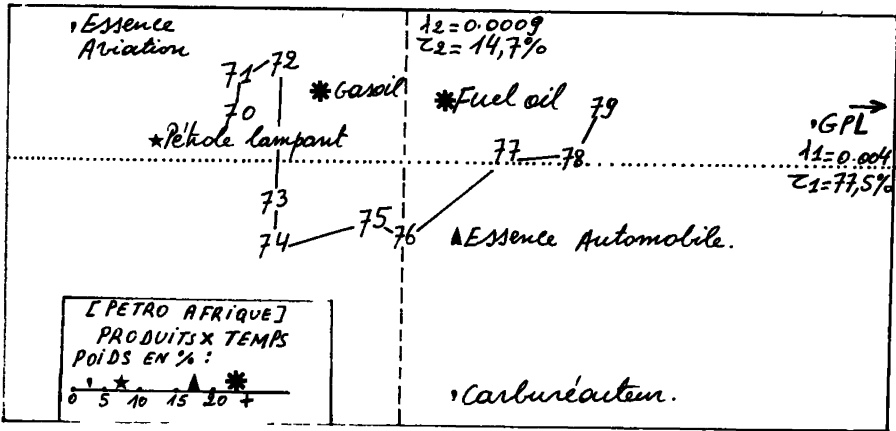 Essence
Aviation
λ2=0.0009
τ2=14,7%
71 72
Gasoil
Fuel oil
79
70
Pétrole lampant
GPL
77
78
λ1=0.004
τ1=77,5%
73
74
75
76
Essence Automobile.
[PETRO AFRIQUE]
PRODUITS X TEMPS
POIDS EN % :
0 5 10 15 20 +
Carburéacteur.